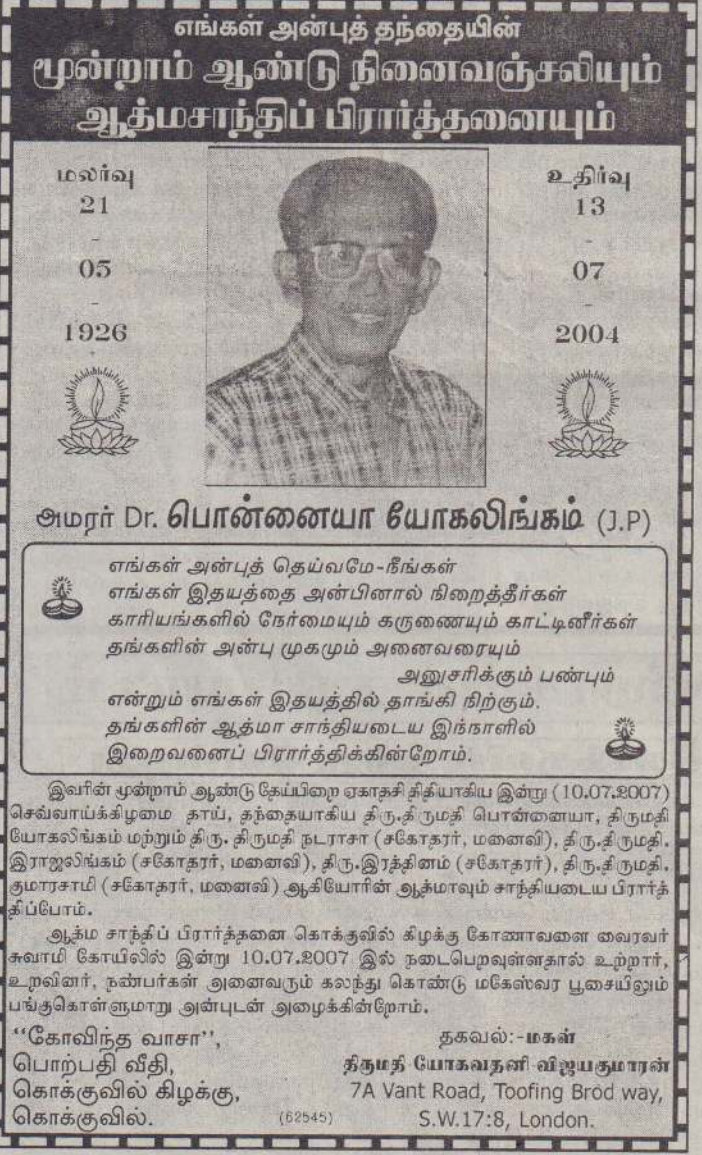 எங்கள் அன்புத் தந்தையின்
மூன்றாம் ஆண்டு நினைவஞ்சலியும்
ஆத்மசாந்திப் பிரார்த்தனையும்
மலர்வு
21
-
05
-
1926
உதிர்வு
13
-
07
-
2004
அமரர் Dr. பொன்னையா யோகலிங்கம் (J.P)
எங்கள் அன்புத் தெய்வமே-நீங்கள்
எங்கள் இதயத்தை அன்பினால் நிறைத்தீர்கள்
காரியங்களில் நேர்மையும் கருணையும் காட்டினீர்கள்
தங்களின் அன்பு முகமும் அனைவரையும்
அனுசரிக்கும் பண்பும்
என்றும் எங்கள் இதயத்தில் தாங்கி நிற்கும்.
தங்களின் ஆத்மா சாந்தியடைய இந்நாளில்
இறைவனைப் பிரார்த்திக்கின்றோம்.
இவரின் மூன்றாம் ஆண்டு தேய்பிறை ஏகாதசி திதியாகிய இன்று (10.07.2007)
செவ்வாய்க்கிழமை தாய், தந்தையாகிய திரு.திருமதி பொன்னையா, திருமதி
யோகலிங்கம் மற்றும் திரு. திருமதி நடராசா (சகோதரர், மனைவி), திரு.திருமதி.
இராஜலிங்கம் (சகோதரர், மனைவி), திரு.இரத்தினம் (சகோதரர்), திரு.திருமதி.
குமாரசாமி (சகோதரர், மனைவி) ஆகியோரின் ஆத்மாவும் சாந்தியடைய பிரார்த்
திப்போம்.
ஆத்ம சாந்திப் பிரார்த்தனை கொக்குவில் கிழக்கு கோணாவளை வைரவர்
சுவாமி கோயிலில் இன்று 10.07.2007 இல் நடைபெறவுள்ளதால் உற்றார்,
உறவினர், நண்பர்கள் அனைவரும் கலந்து கொண்டு மகேஸ்வர பூசையிலும்
பங்குகொள்ளுமாறு அன்புடன் அழைக்கின்றோம்.
"கோவிந்த வாசா",
பொற்பதி வீதி,
கொக்குவில் கிழக்கு,
கொக்குவில்.
(62545)
தகவல்:-மகள்
திருமதி யோகவதனி விஜயகுமாரன்
7A Vant Road, Toofing Brod way,
S.W.17:8, London.